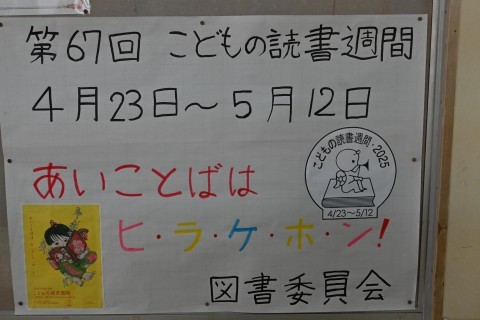 第67回 こどもの読書週間
4月23日～5月12日
こどもの読書週間・2025
4/23～5/12
あいことばは
ヒ・ラ・ケ・ホ・ン!
図書委員会
こどもの読書週間